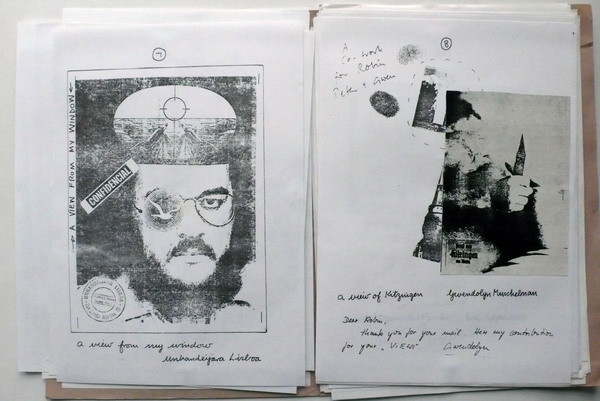 7
A VIEW FROM MY WINDOW
CONFIDENCIAL
a view from my window
Unhandeijara Lisboa
8
A
Co-work
for Robin
Peter + Gwen
Kitzingen
am Main
a view of Kitzingen
Gwendolyn Muschelman
Dear Robin,
thank you for your mail. Here my contribution
for your "VIEW"
Gwendolyn